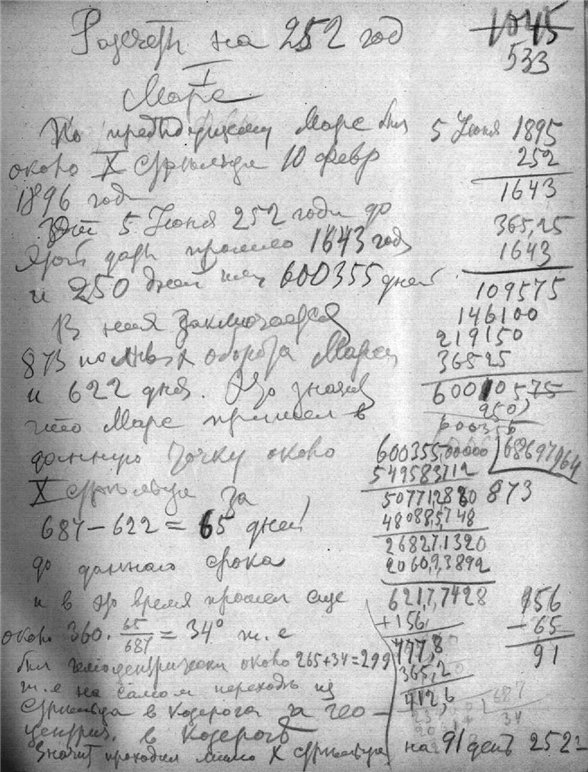 Разсчетъ на 252 год
1045
533
I
Марс
По предыдущему Марс был
около X стрельца 10 февр
1896 годы
От 5 Июня 252 года до
этой даты прошло 1643 года
и 250 дней или 600355 дней
В них заключается
873 полных оборота Марса
и 622 дня. Это значит
что Марс пришел в
данную точку около
X стрельца за
687 — 622 = 65 дней
до данного срока
и в это время прошел еще
около 360 · 65/687 = 34° т. е
был гелиоцентрически около 265+34=299
т. е на самом переходе из
стрельца в Козерога а гео-
центрич. в Козероге
Значит проходил мимо X стрельца на 91 день 252 г
5 Июня 1895
252
1643
365,25
1643
109575
146100
219150
36525
600105,75
250
600355
600355,00000 | 68697964
549583712
507712880 873
480885748
268271320
206093892
6217,7428
+156
777,8
365,2
412,6
687
34
156
-65
91